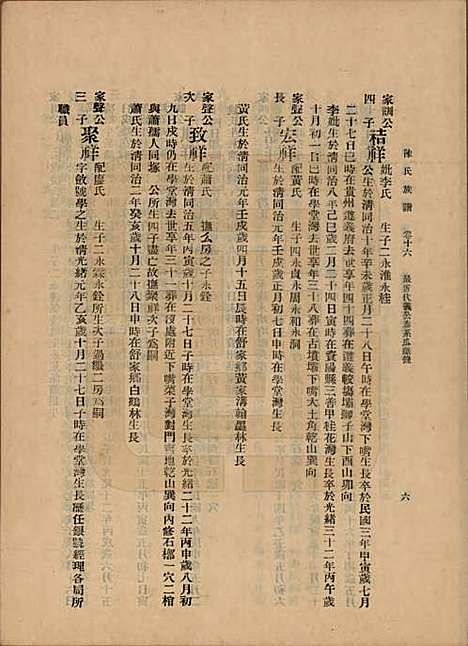 陳氏族譜 卷十六 六
家訓公 秸祥 妣李氏 生子二永淮永桂
四子 公生於清同治十年辛未歲正月二十八日午時在學堂灣下嘴生長卒於民國三年甲寅歲七月
二十七日巳時在貴州遵義府去世享年四十四葬在遵義較塲壩獅子山下酉山卯向
李妣生於清同治八年己巳歲二月二十四日時在資陽縣三善甲桂花灣生長卒於光緒三十二年丙午歲
十月初一日已時在學堂灣去世享年三十八葬在古墳壩下嘴大土角乾山巽向
家聲公 宏祥 配黃氏 生子四永貞永周永和永洞
長子 生於清同治元年壬戌歲正月初七日申時在學堂灣生長
黃氏生於清同治元年壬戌歲四月十五日辰時在舒家鄉黃家溝翰墨林生長
家聲公 致祥 配蕭氏 撫么房之子永銓
次子 生於清同治五年丙寅歲十月二十七日子時在學堂灣生長卒於光緒二十二年丙申歲八月初
九日戌時仍在學堂灣去世享年三十一葬在宿處附近下嘴菜子灣對門地乾山巽向內修石槨一穴二棺
與蕭孺人同塚 公所生四子盡亡故撫聚祥次子爲嗣
蕭氏生於清同治二年癸亥歲十月二十八日申時在舒家鄉白鶴林生長
家聲公 聚祥 配廖氏 生子二永霖永銓所生次子過繼二房爲嗣
三子 字斂號學之生於清光緒元年乙亥歲十月二十七日子時在學堂灣生長歷任銀號經理各局所
職員